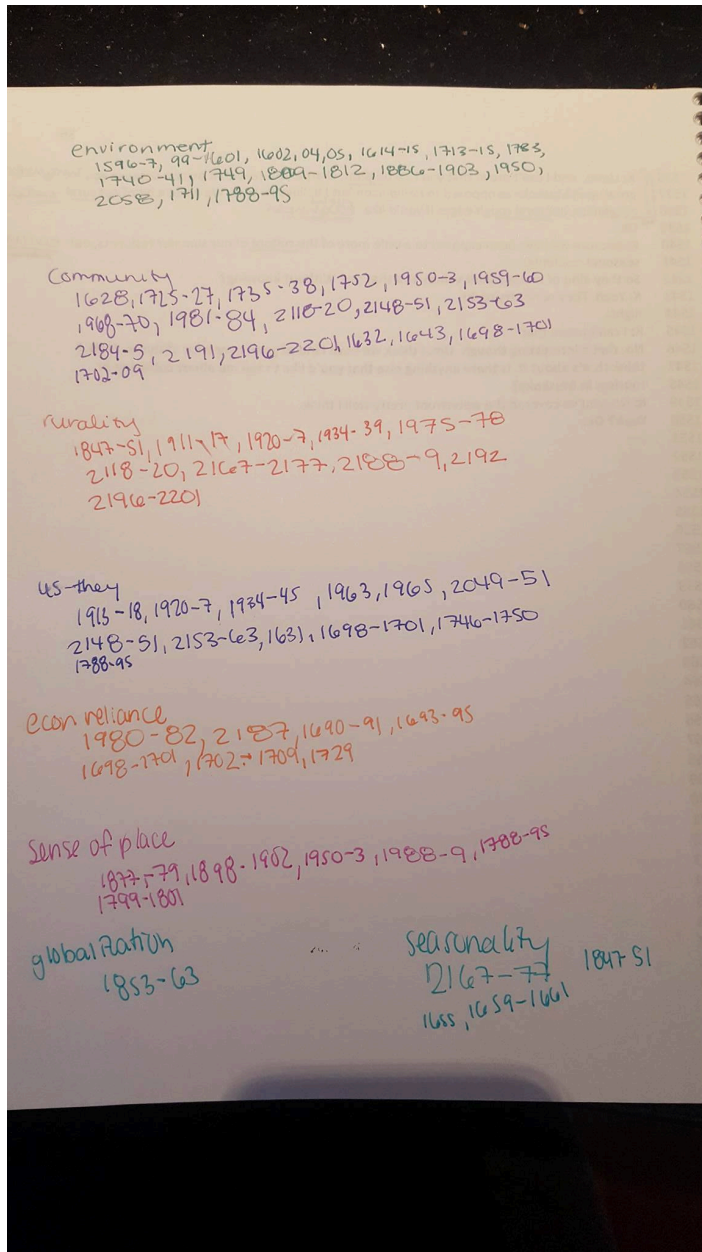 environment
1596-7, 99-1601, 1602, 04, 05, 1614-15, 1713-15, 1783,
1740-41, 1749, 1809-1812, 1886-1903, 1950,
2058, 1711, 1788-95
Community
1628, 1725-27, 1735-38, 1752, 1950-3, 1959-60
1968-70, 1981-84, 2118-20, 2148-51, 2153-63
2184-5, 2191, 2196-2201, 1632, 1643, 1698-1701
1702-09
rurality
1847-51, 1911-17, 1920-7, 1934-39, 1975-78
2118-20, 2167-2177, 2188-9, 2192
2196-2201
us-they
1913-18, 1920-7, 1934-45, 1963, 1965, 2049-51
2148-51, 2153-63, 1631, 1698-1701, 1746-1750
1788-95
econ reliance
1980-82, 2187, 1690-91, 1693-95
1698-1701, 1702-1709, 1729
Sense of place
1877-79, 1898-1902, 1950-3, 1988-9, 1788-95
1799-1801
globalization
1853-63
seasonality
2167-77 1847-51
1655, 1659-1661